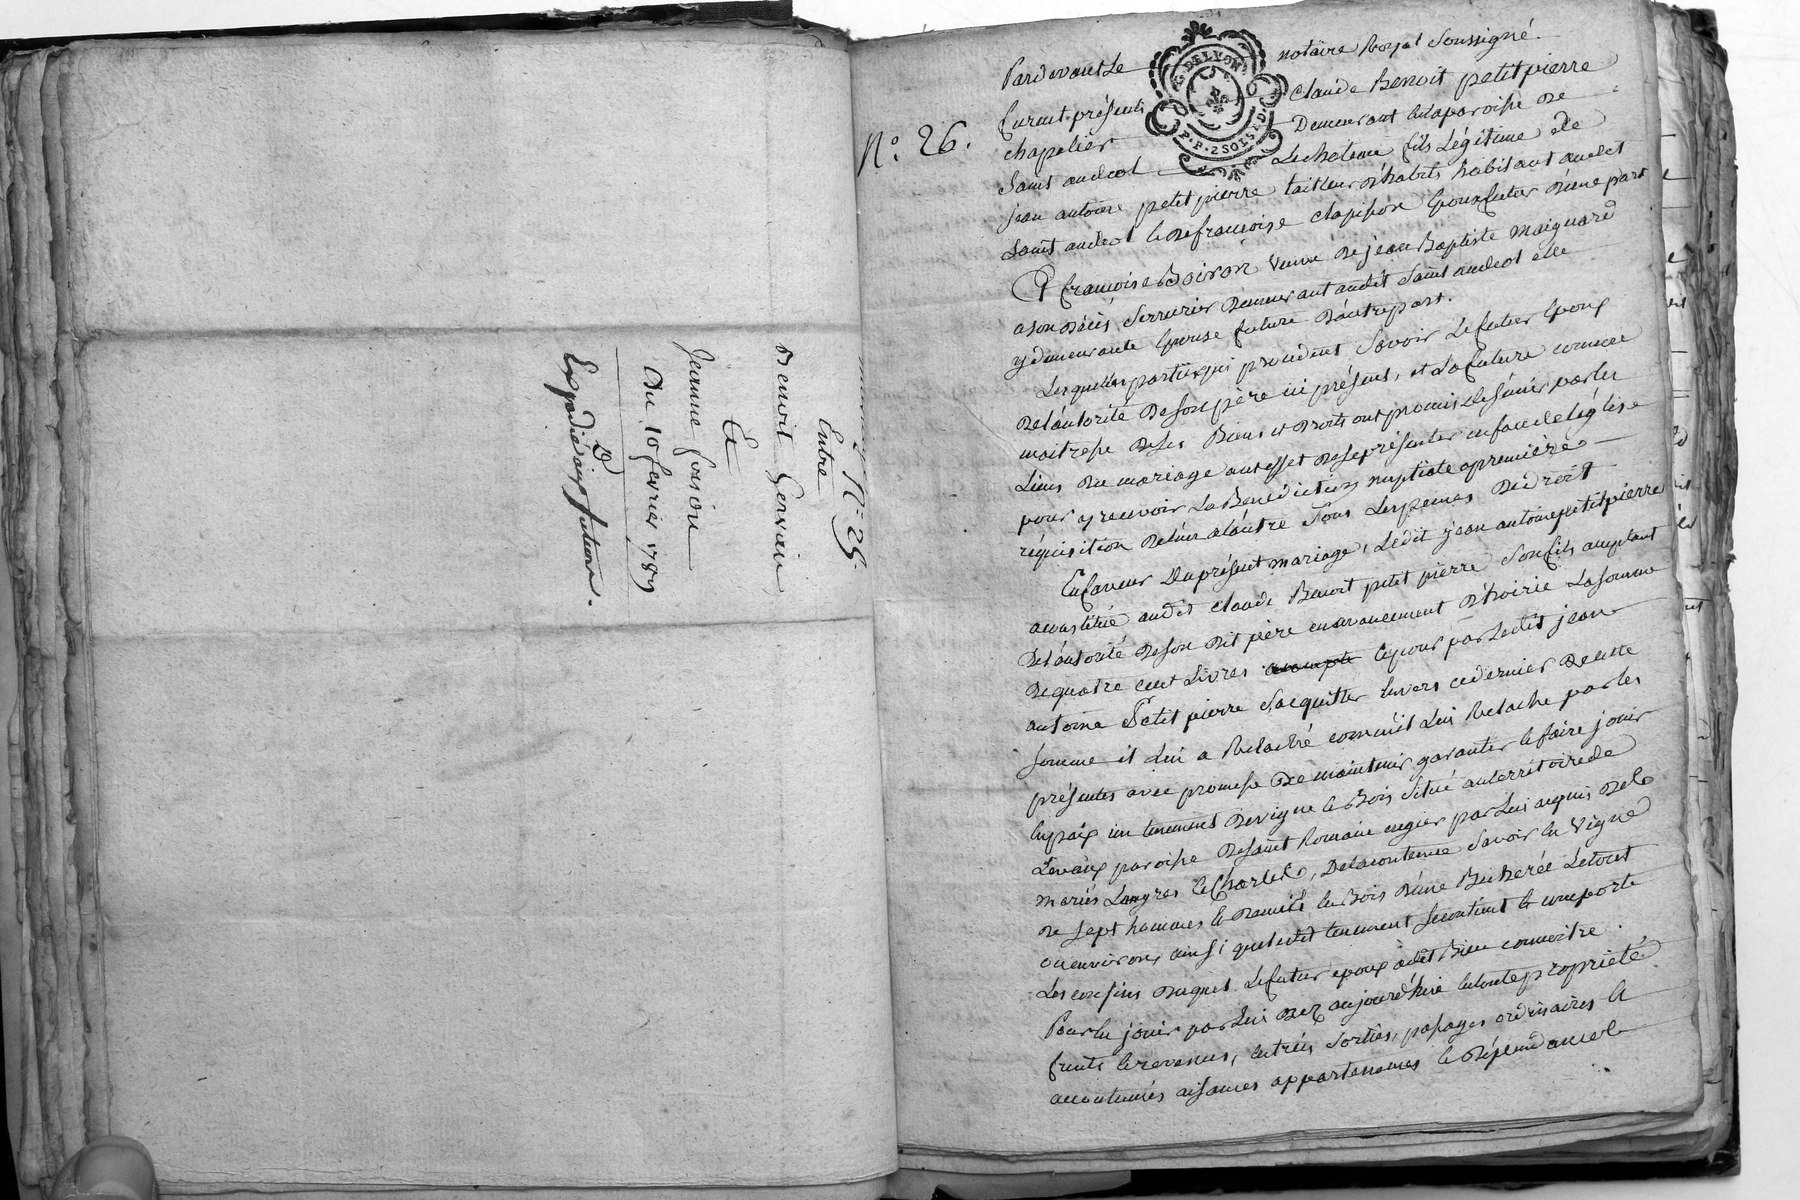 N.º 25.
Entre
Benoit Gervais
Et
Jeanne
Du 10 fevrier 1789
Expedié aux futurs.
N.º 26.
G. DE LYON
P.P. 2 SOLS 2 D.
Pardevant Le notaire Royal Soussigné
furent présents Claude Benoit petit pierre
chapelier Demeurant en la paroisse de
Saint andeol Le chateau fils Légitime de
jean antoine petit pierre tailleur d'habits habitant audit
Saint andeol et de francoise clapisson Epoux futur D'une part
Et francoise Boiron veuve de jean Baptiste maignard
a son décès Serrurier Demeurant audit Saint andeol elle
y demeurante Epouse future D'autre part.
Lesquelles parties qui procedent Savoir Le futur Epoux
De L'autorité De son père ici présent, et La future comme
maitresse De ses Biens et Droits ont promis de s'unir par les
Liens du mariage a cet effet de se présenter en face de l'église
pour y recevoir La Bénédiction nuptiale a première
réquisition De l'un a l'autre Sous Les peines De droit
En faveur Du présent mariage, Ledit jean antoine petit pierre
a constitué audit Claude Benoit petit pierre Son fils acceptant
De L'autorité De son Dit père en avancement D'hoirie La somme
De quatre cent Livres et pour par Ledit jean
antoine Petit pierre S'acquitter Envers ce dernier De cette
somme il Lui a Relaché comme il Lui Relache par les
présentes avec promesse De maintenir garantir et faire jouir
En paix un tenement De vigne et Bois Situé au territoire de
paroisse De Saint Romain en gier par Lui acquis De
mariés Langres et, De la contenue Savoir La vigne
De sept hommes et Demie et le Bois D'une Bicherée Le tout
ou environ, ainsi que ledit tenement Se contient et comporte
Les confins Duquel Le futur epoux a dit Bien connoitre.
Pour En jouir par Lui Dez aujourd'hui en toute propriété
fruits et revenus, Entrées Sorties, passages ordinaires et
accoutumés aisances appartenances et Dépendances